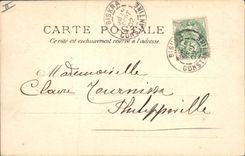 BISKRA
CONST
CARTE POSTALE
Ce côté est exclusivement réservé à l'adresse.
BISKRA
CONST
Mademoiselle
Claire Tournissa
Philippeville